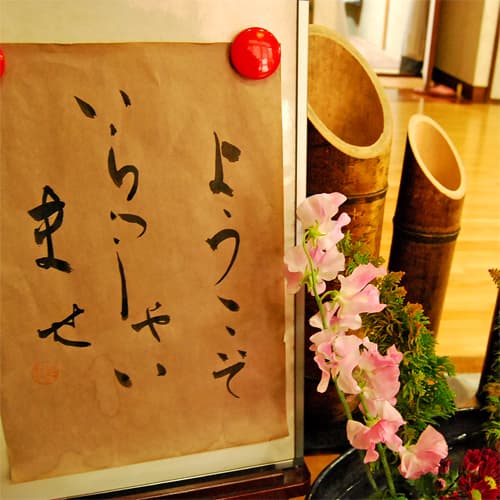 ようこそ
いらっしゃい
ませ